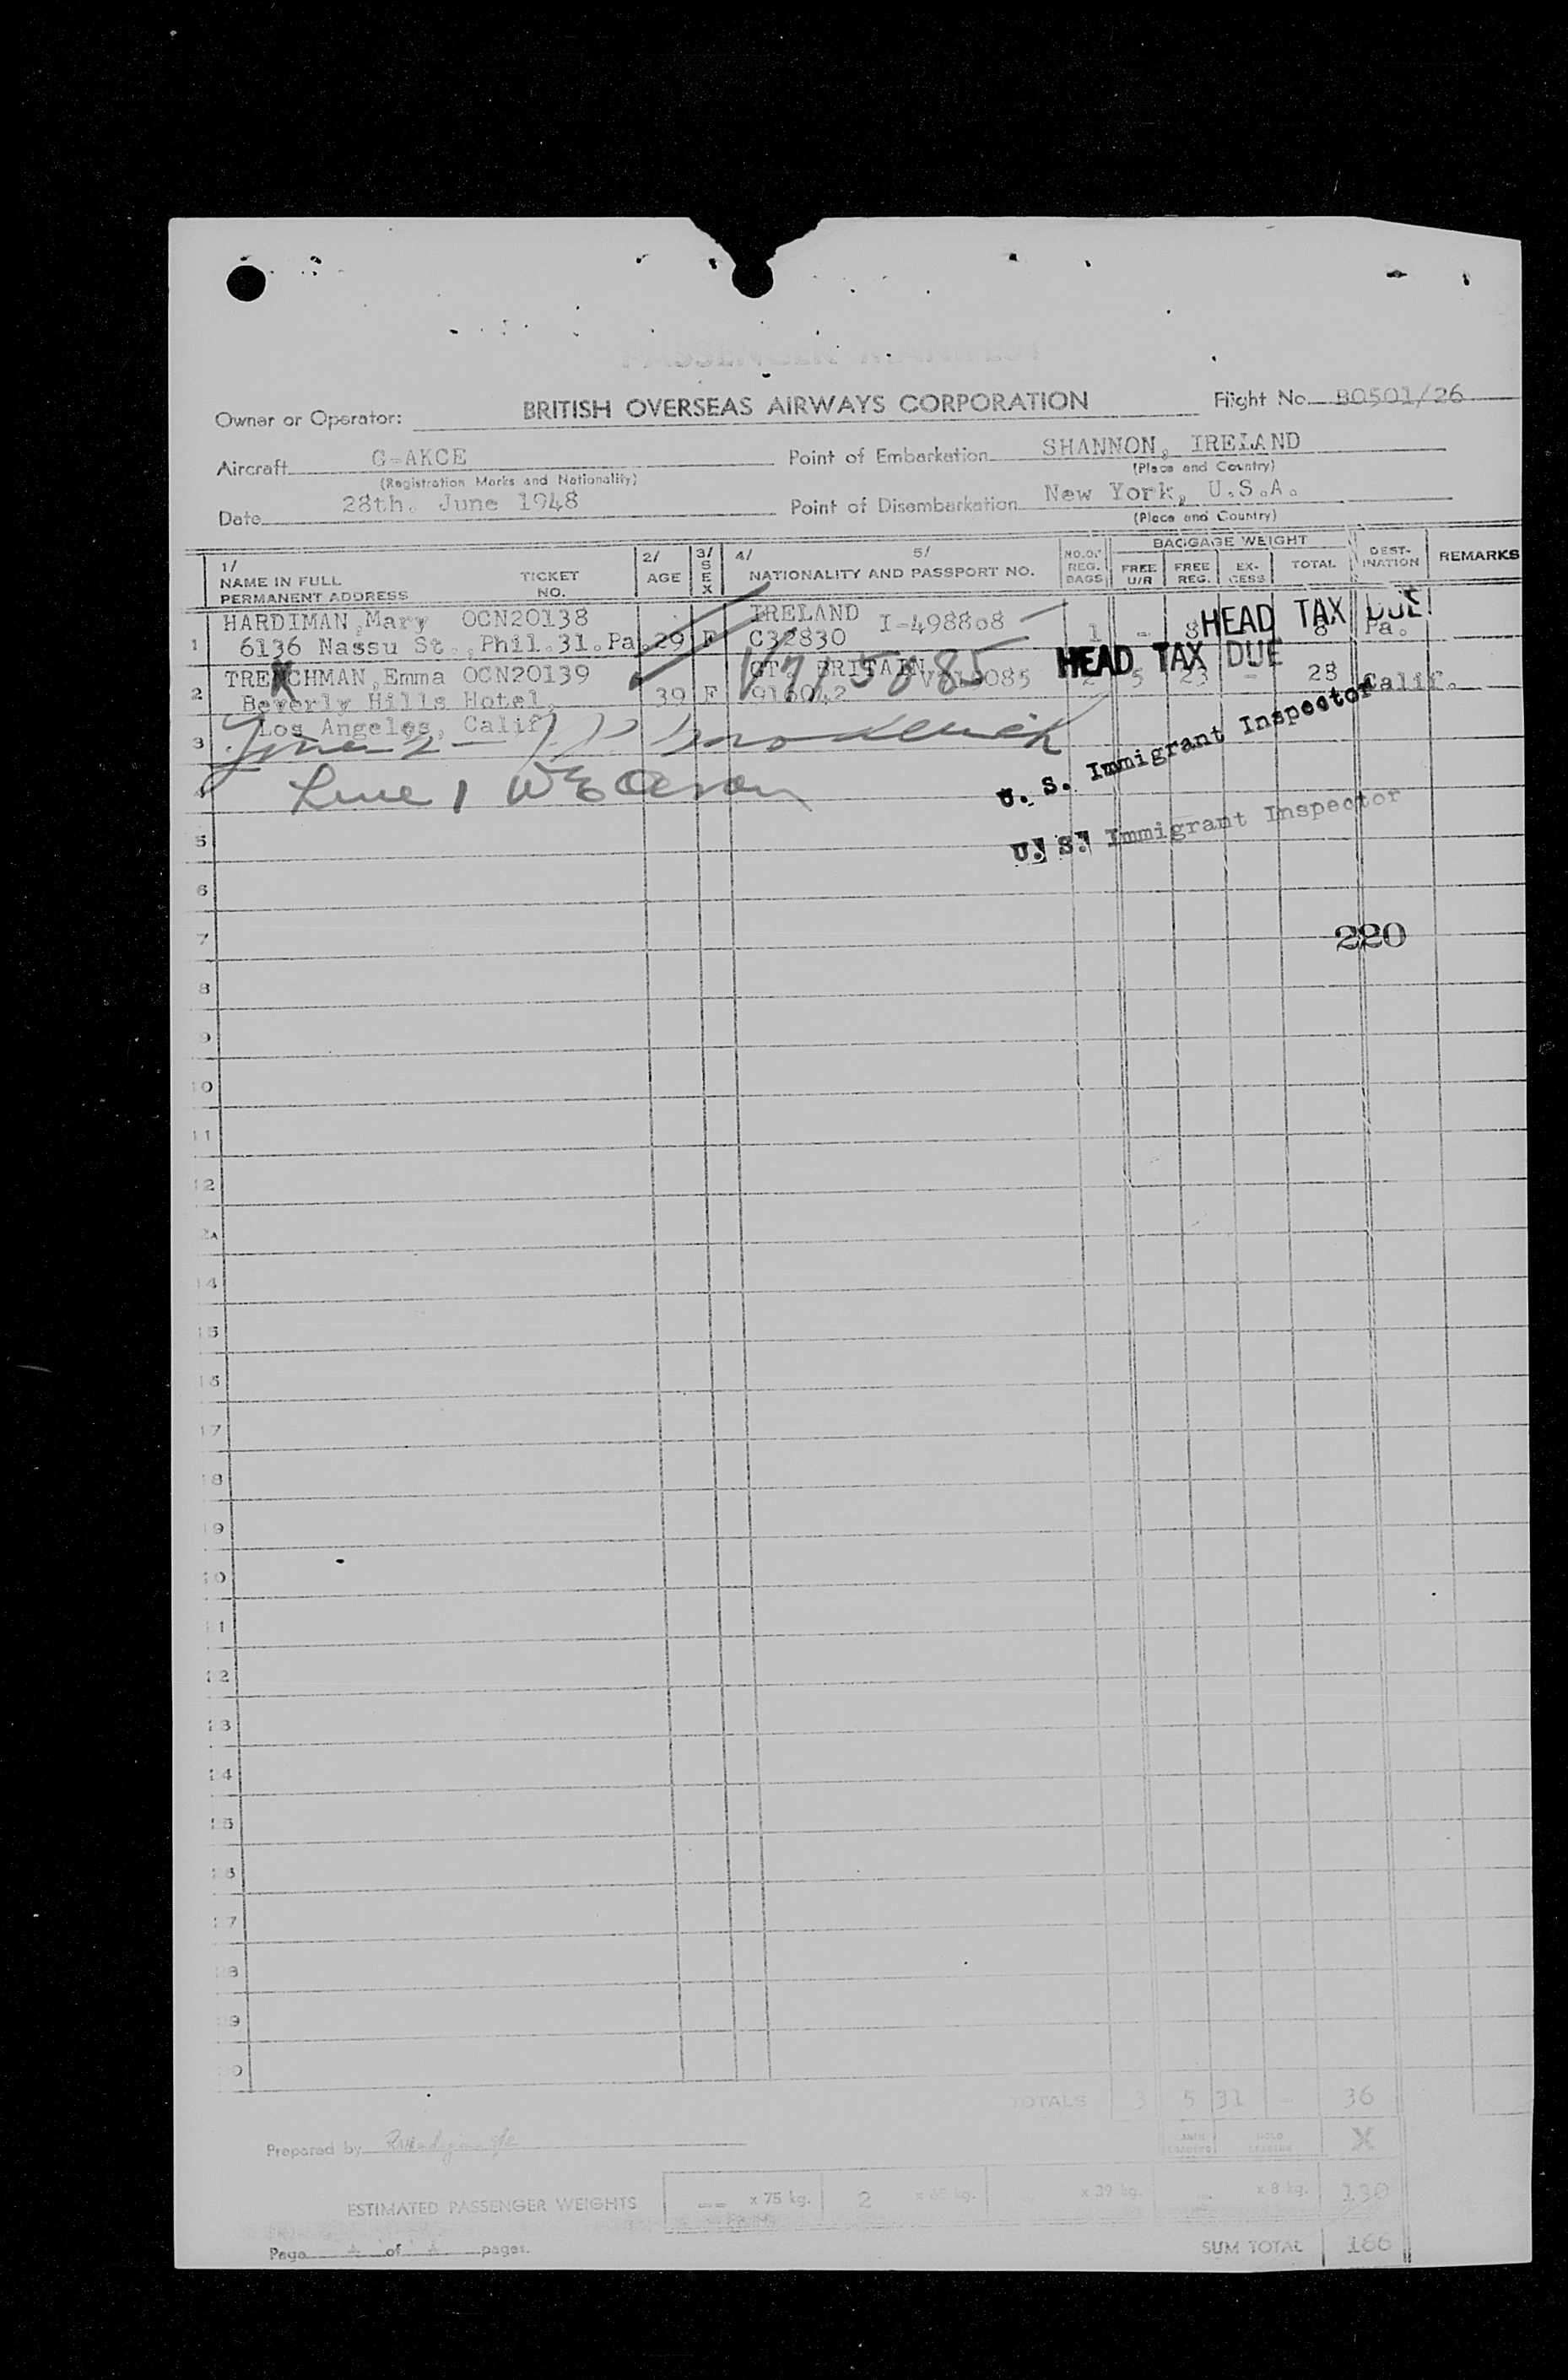 Owner or Operator: BRITISH OVERSEAS AIRWAYS CORPORATION Flight No. BO501/26
Aircraft G-AKCE Point of Embarkation SHANNON, IRELAND
(Registration Marks and Nationality) (Place and Country)
Date 28th. June 1948 Point of Disembarkation New York, U.S.A.
(Place and Country)
1/ NAME IN FULL PERMANENT ADDRESS TICKET NO. 2/ AGE 3/ SEX 4/ 5/ NATIONALITY AND PASSPORT NO. NO. OF REG. BAGS BAGGAGE WEIGHT FREE U/R FREE REG. EX-CESS TOTAL DEST-INATION REMARKS
HARDIMAN, Mary OCN20138 IRELAND I-498808 HEAD TAX DUE
1 6136 Nassu St., Phil.31.Pa. 29 F C32830 1 - 8 8 Pa.
TRENCHMAN, Emma OCN20139 GT. BRITAIN V715085 HEAD TAX DUE
2 Beverly Hills Hotel, 39 F 916042 2 5 23 - 28 Calif.
V715085
Los Angeles, Calif
3
4 Line 1
U. S. Immigrant Inspector
U. S. Immigrant Inspector
5
6
7 220
8
9
10
11
12
14
15
16
17
18
19
TOTALS 3 5 31 - 36
Prepared by
X
ESTIMATED PASSENGER WEIGHTS -- x 75 kg. 2 x 39 kg. x 8 kg. 130
Page of pages. SUM TOTAL 166